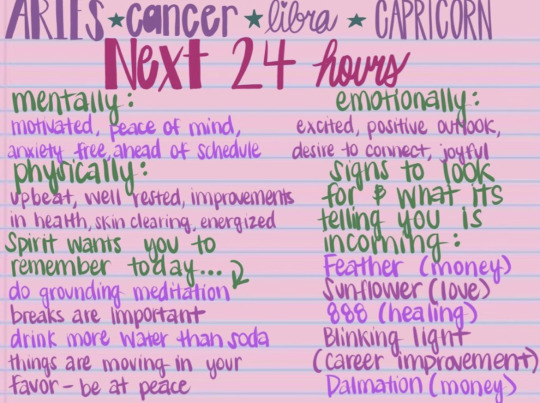 ARIES ★ cancer ★ libra ★ CAPRICORN
Next 24 hours
mentally:
motivated, peace of mind,
anxiety free, ahead of schedule
physically:
upbeat, well rested, improvements
in health, skin clearing, energized
Spirit wants you to
remember today...
do grounding meditation
breaks are important
drink more water than soda
things are moving in your
favor - be at peace
emotionally:
excited, positive outlook,
desire to connect, joyful
signs to look
for & what its
telling you is
incoming:
Feather (money)
Sunflower (love)
888 (healing)
Blinking light
(career improvement)
Dalmation (money)